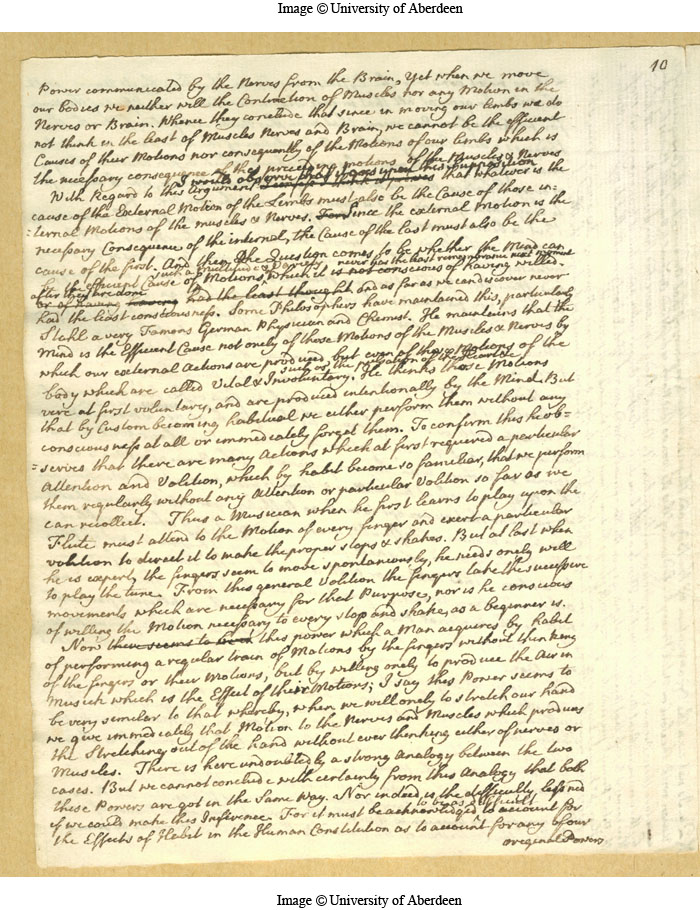 Image © University of Aberdeen
10
Power communicated by the Nerves from the Brain, Yet when we move
our bodies we neither will the Contraction of Muscles nor any Motion in the
Nerves or Brain. Whence they conclude that since in moving our limbs we do
not think in the least of Muscles Nerves and Brain, we cannot be the efficient
Causes of their Motions nor consequently of the Motions of our limbs which is
the necessary consequence of the preceding motions of the Muscles & Nerves
I would observe that
With Regard to this Argument that whatever is the
cause of the External Motion of the Limbs must also be the Cause of those in-
-ternal Motions of the muscles & Nerves. For since the external Motion is the
necessary Consequence of the internal, the Cause of the last must also be the
cause of the first. And then the Question comes to be whether the Mind can
such a Multitude & Variety never has the least remembrance next moment
be the efficient Cause of Motions, which it is not conscious of having willed
after they are done
or of having had the least thought and as far as we can discover never
had the least consciousness. Some Philosophers have maintained this, particularly
Stahl a very Famous German Physician and Chemist. He maintains that the
Mind is the Efficient Cause not onely of those Motions of the Muscles & Nerves by
which our external Actions are produced, but even of those Motions of the
such as the Pulsation of the Heart &c
body which are called Vital & Involuntary, He thinks those Motions
were at first voluntary, and are produced intentionally by the Mind. But
that by Custom becoming habitual we either perform them without any
consciousness at all or immediately forget them. To confirm this he ob-
-serves that there are many Actions which at first required a particular
Attention and Volition, which by habit become so familiar, that we perform
them regularly without any Attention or particular Volition so far as we
can recollect. Thus a Musician when he first learns to play upon the
Flute must attend to the Motion of every finger and exert a particular
volition to direct it to make the proper stops & shakes. But at last when
he is expert, the fingers seem to move spontaneously, he needs onely will
to play the tune. From this general Volition the fingers take the successive
movements which are necessary for that Purpose, nor is he conscious
of willing the Motion necessary to every stop and shake, as a beginner is.
Now there seems to be this power which a Man acquires by habit
of performing a regular train of Motions by the fingers without thinking
of the fingers or their Motions, but by willing onely to produce the Air in
Musick which is the Effect of these Motions; I say this Power seems to
be very similar to that whereby, when we will onely to stretch our hand
we give immediately that Motion to the Nerves and Muscles which produces
the Stretching out of the hand without ever thinking either of nerves or
Muscles. There is here undoubtedly a strong Analogy between the two
cases. But we cannot conclude with certainty from this Analogy that both
these Powers are got in the same way. Nor indeed is the difficulty lessned
if we could make this Inference. For it must be acknowledged to account for
to be as difficult
the Effects of Habit in the Human Constitution as to account for any of our
original Powers
Image © University of Aberdeen